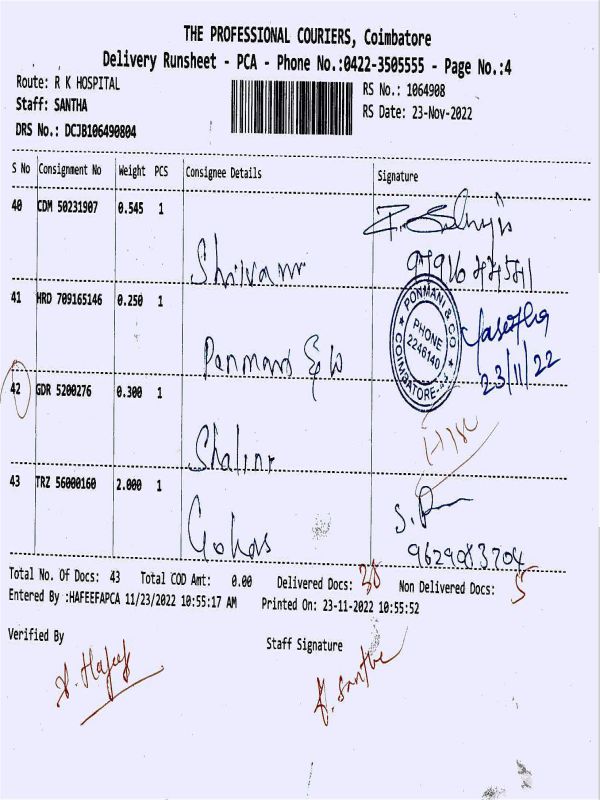 THE PROFESSIONAL COURIERS, Coimbatore
Delivery Runsheet - PCA - Phone No.:0422-3505555 - Page No.:4
Route: R K HOSPITAL
RS No.: 1064908
Staff: SANTHA
RS Date: 23-Nov-2022
DRS No.: DCJB106490804
S No Consignment No Weight PCS Consignee Details Signature
40 CDM 50231907 0.545 1
41 HRD 709165146 0.250 1
PONMANI & CO
PHONE
2246140
COIMBATORE
23/11/22
42 GDR 5200276 0.300 1
Shalini
43 TRZ 56000160 2.000 1
9629083704
Total No. Of Docs: 43 Total COD Amt: 0.00 Delivered Docs: 38 Non Delivered Docs: 5
Entered By :HAFEEFAPCA 11/23/2022 10:55:17 AM Printed On: 23-11-2022 10:55:52
Verified By Staff Signature